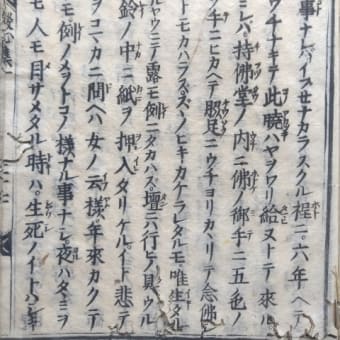 事ナレハイスセナカラスクル程ニ六年ヘテ
ウチナキテ此暁ハヤヲワリ給ヌトテ來ル
ミレバ持佛堂ノ内ニ佛ノ御手ニ五色ノ
ウチニヒカヘテ脇足ニウチヨリカヽリテ念佛
トモカハラスズヽノヒキカケラレタルモ唯生タル
ルヤウニテ露モ例ニタカハス。壇ニハ行ヒノ具ウル
鈴ノ中ニ紙ヲ押入タリケルイト悲テ
ヲコマカニ問ヘハ女ノ云様年來カクテ
モ例ノメヲトコノ様ナル事ナシ。夜ハタヽミヲ
モ人モ目サメタル時ハ。生死ノイトハシキ